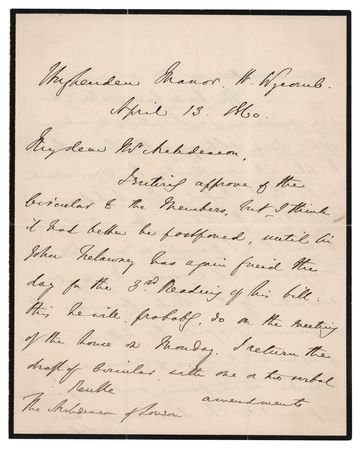 Hughenden Manor. H. Wycomb.
April 13. 1860.
My dear Mr Archdeacon,
I entirely approve of the
Circular to the Members, but I think
it had better be postponed, until Sir
John Trelawney has again fixed the
day for the 3rd Reading of his bill.
This he will probably do on the meeting
of the house on Monday. I return the
draft of Circular with one or two verbal
amendments
The Archdeacon of London